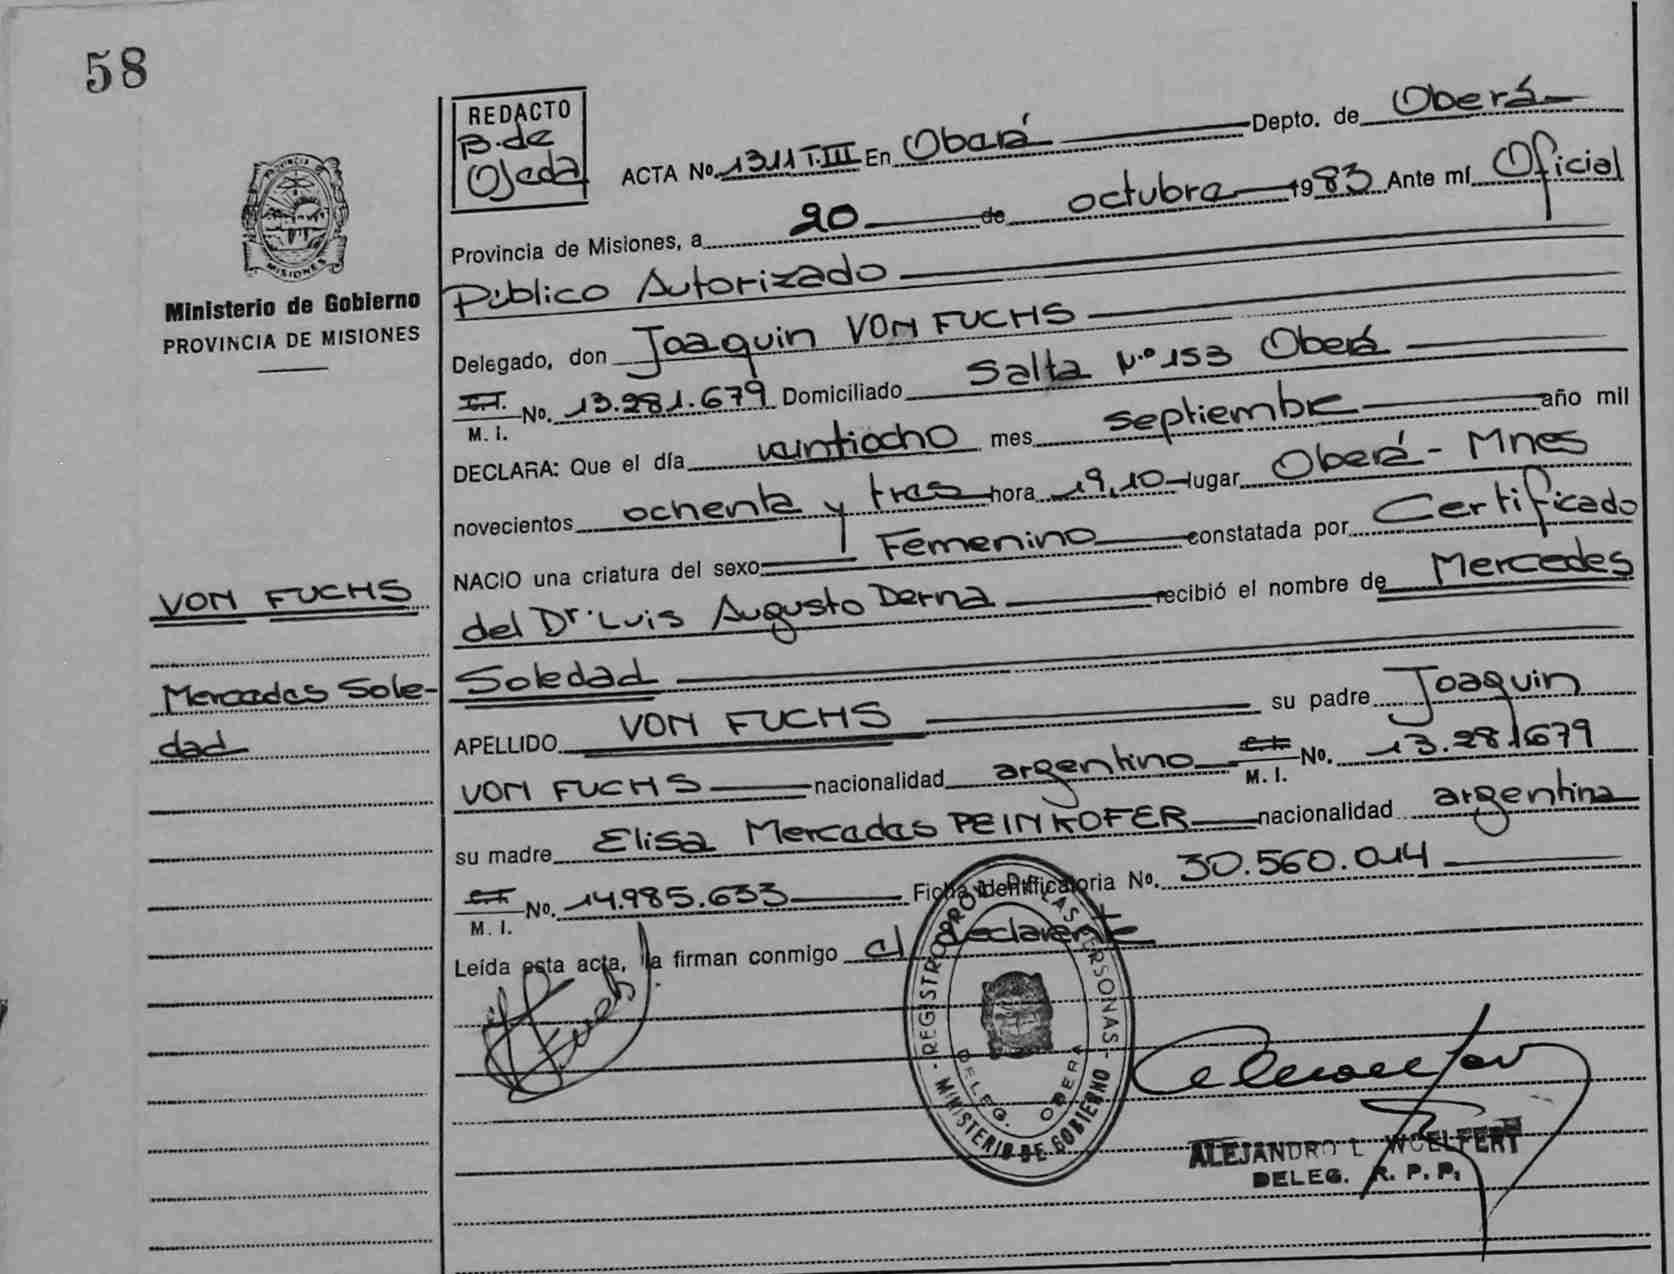 58
REDACTO
B. de
Ojeda
ACTA No. 1311 T. III En Oberá Depto. de Oberá
Provincia de Misiones, a 20 de octubre 1983 Ante mí Oficial
Público Autorizado
Delegado, don Joaquin VON FUCHS
M. I. No. 13.281.679 Domiciliado Salta Nº 153 Oberá
DECLARA: Que el día veintiocho mes septiembre año mil
novecientos ochenta y tres hora 19,10 lugar Oberá - Mnes
NACIO una criatura del sexo Femenino constatada por Certificado
del Dr. Luis Augusto Derna recibió el nombre de Mercedes
Soledad
APELLIDO VON FUCHS su padre Joaquin
VON FUCHS nacionalidad argentino M. I. No. 13.281.679
su madre Elisa Mercedes PEINKOFER nacionalidad argentina
M. I. No. 14.985.633 Ficha Identificatoria No. 30.560.014
Leída esta acta, la firman conmigo el declarante
PROVINCIA
MISIONES
Ministerio de Gobierno
PROVINCIA DE MISIONES
VON FUCHS
Mercedes Sole-
dad
REGISTRO PROV. DE LAS PERSONAS
MINISTERIO DE GOBIERNO
DELEG. OBERA
ALEJANDRO L WOELFERT
DELEG. R. P. P.